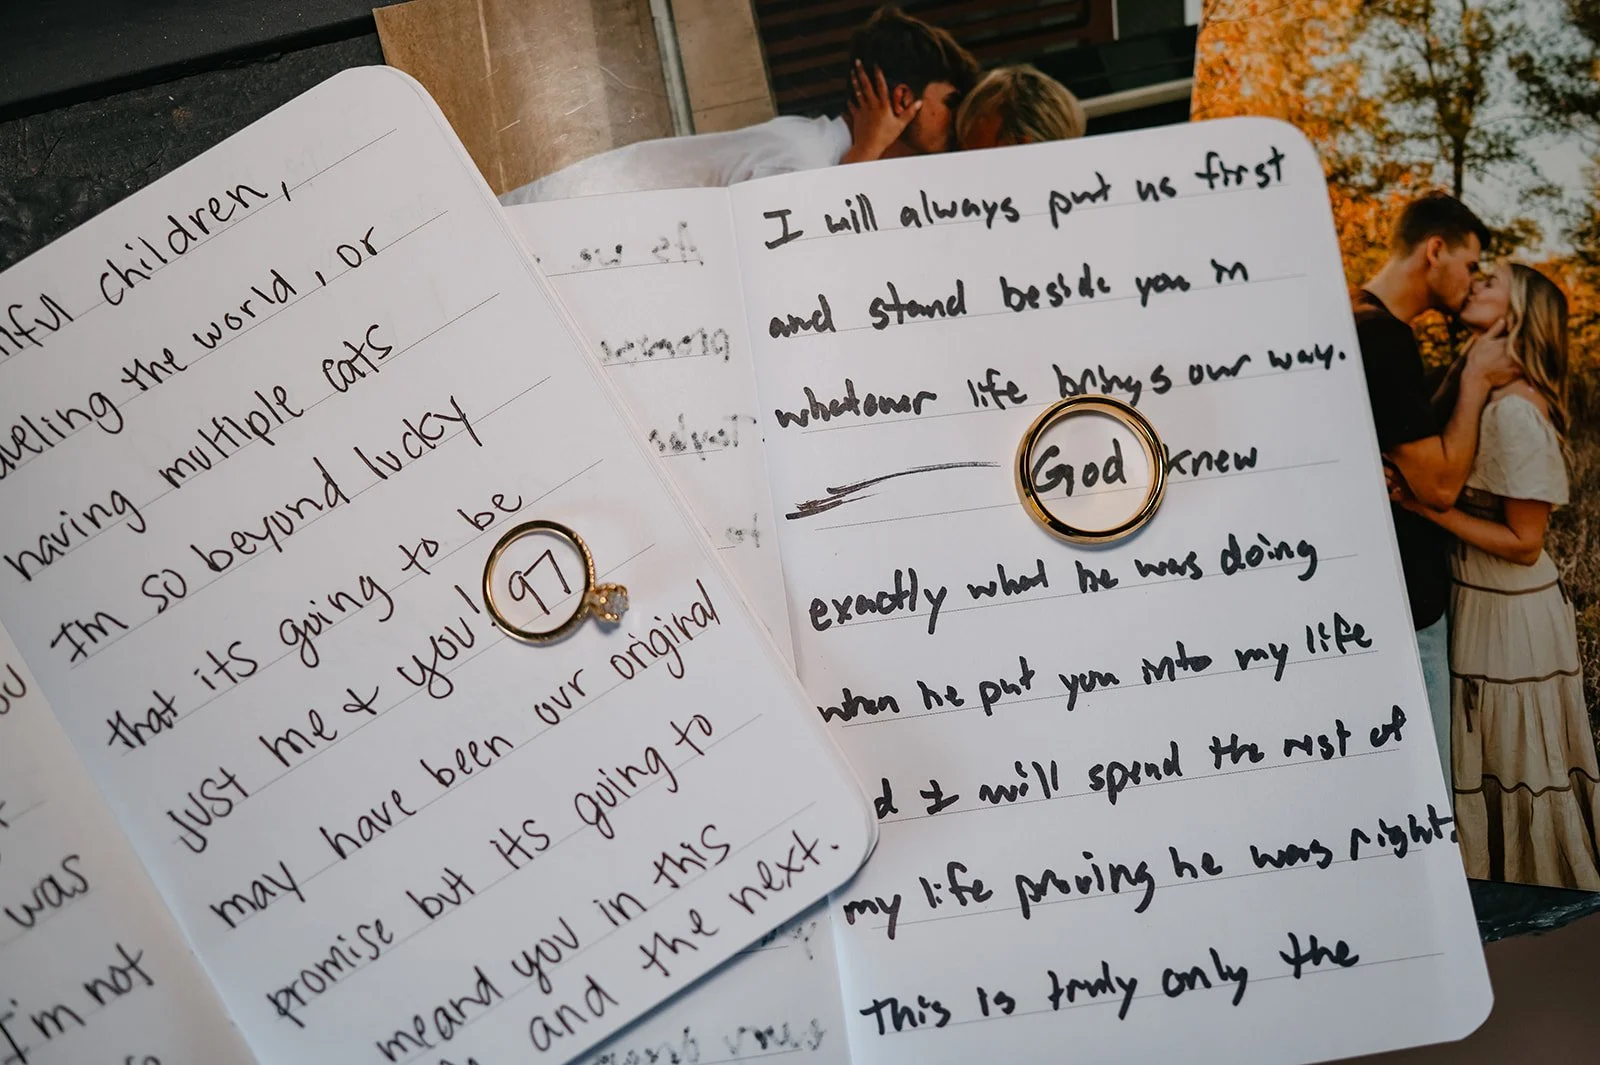 children,
the world, or
having multiple cats
I'm so beyond lucky
that its going to be
just me & you! 97
may have been our original
promise but its going to
me and you in this
and the next.
was
I'm not
I will always put us first
and stand beside you in
whatever life brings our way.
God knew
exactly what he was doing
when he put you into my life
I will spend the rest of
my life proving he was right.
This is truly only the